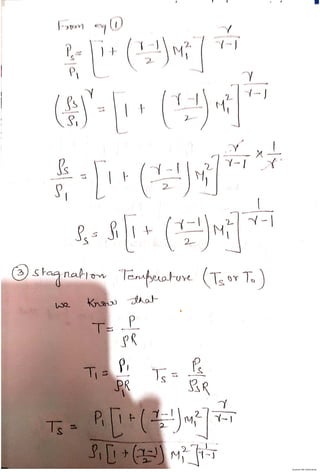 From eq ①
Ps/P1 = [1 + ((γ-1)/2) M1²]^(γ/(γ-1))
(ρs/ρ1)^γ = [1 + ((γ-1)/2) M1²]^(γ/(γ-1))
ρs/ρ1 = [1 + ((γ-1)/2) M1²]^(γ/(γ-1) × 1/γ)
ρs = ρ1 [1 + ((γ-1)/2) M1²]^(1/(γ-1))
③ Stagnation Temperature (Ts or To)
we know that
T = P/ρR
T1 = P1/ρ1R Ts = Ps/ρsR
Ts = P1 [1 + ((γ-1)/2) M1²]^(γ/(γ-1)) / ρ1 [1 + ((γ-1)/2) M1²]^(1/(γ-1))